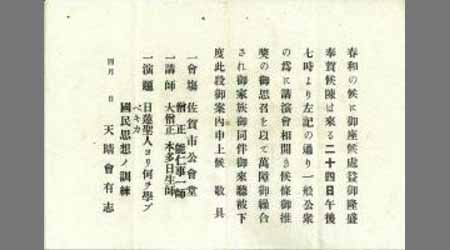 春和の候に御座候處益御隆盛
奉賀候陳は來る二十四日午後
七時より左記の通り一般公衆
の爲に講演會相開き候條御推
奬の御思召を以て萬障御繰合
され御家族御同伴御來聽被下
度此段御案内申上候　敬具
一會塲　佐賀市公會堂
一講師　僧正　能仁事一師
大僧正　本多日生師
一演題　日蓮聖人ヨリ何ヲ學ブ
ベキカ
國民思想ノ訓練
四月　日　天晴會有志